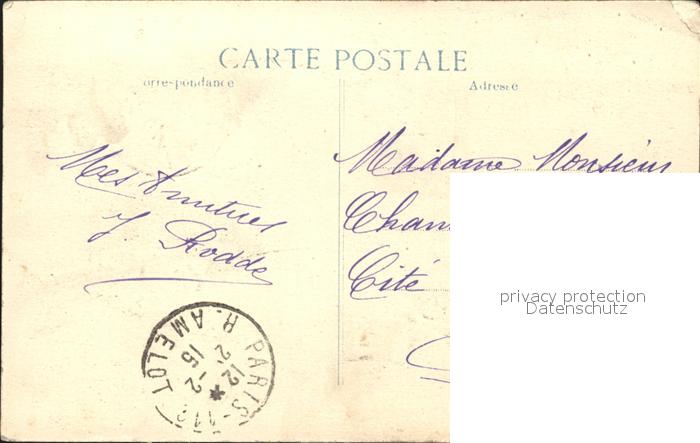 CARTE POSTALE
orrespondance
Adresse
Mes Amitiés
J. Rodde
Madame Monsieur
Cham
Cité
privacy protection
Datenschutz
PARIS-113
R. AMELOT
15-2